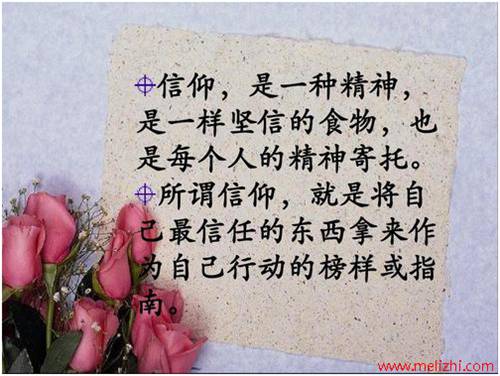 信仰，是一种精神，
是一样坚信的食物，也
是每个人的精神寄托。
所谓信仰，就是将自
己最信任的东西拿来作
为自己行动的榜样或指
南。
www.melizhi.com